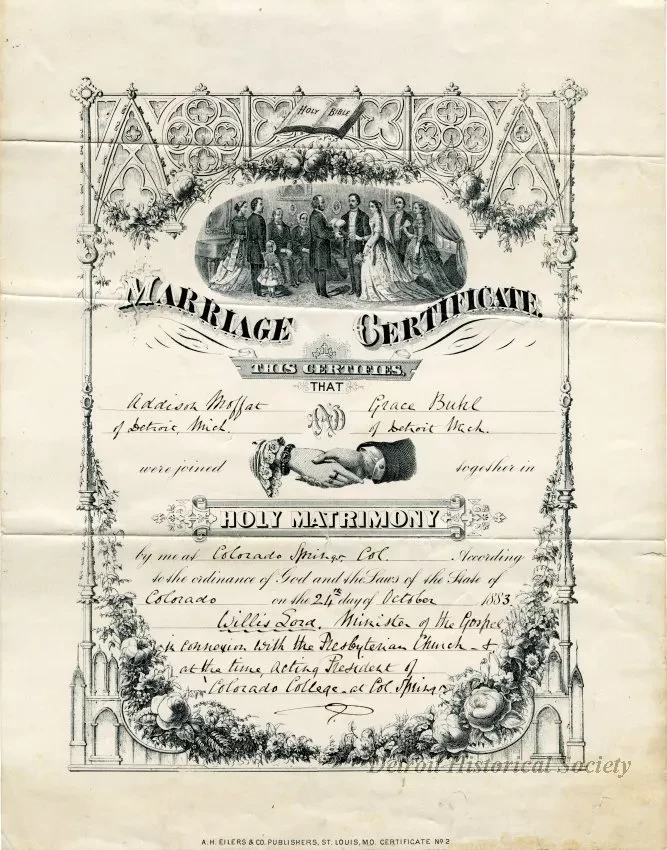 HOLY BIBLE
MARRIAGE CERTIFICATE.
THIS CERTIFIES,
THAT
Addison Moffat AND Grace Buhl
of Detroit, Mich of Detroit Mich.
were joined together in
HOLY MATRIMONY
by me at Colorado Springs Col. According
to the ordinance of God and the Laws of the State of
Colorado on the 24th day of October 1883
Willis Lord, Minister of the Gospel
in connexion with the Presbyterian Church &
at the time, acting President of
Colorado College at Col Springs
Detroit Historical Society
A.H. EILERS & CO. PUBLISHERS, ST. LOUIS, MO. CERTIFICATE No 2